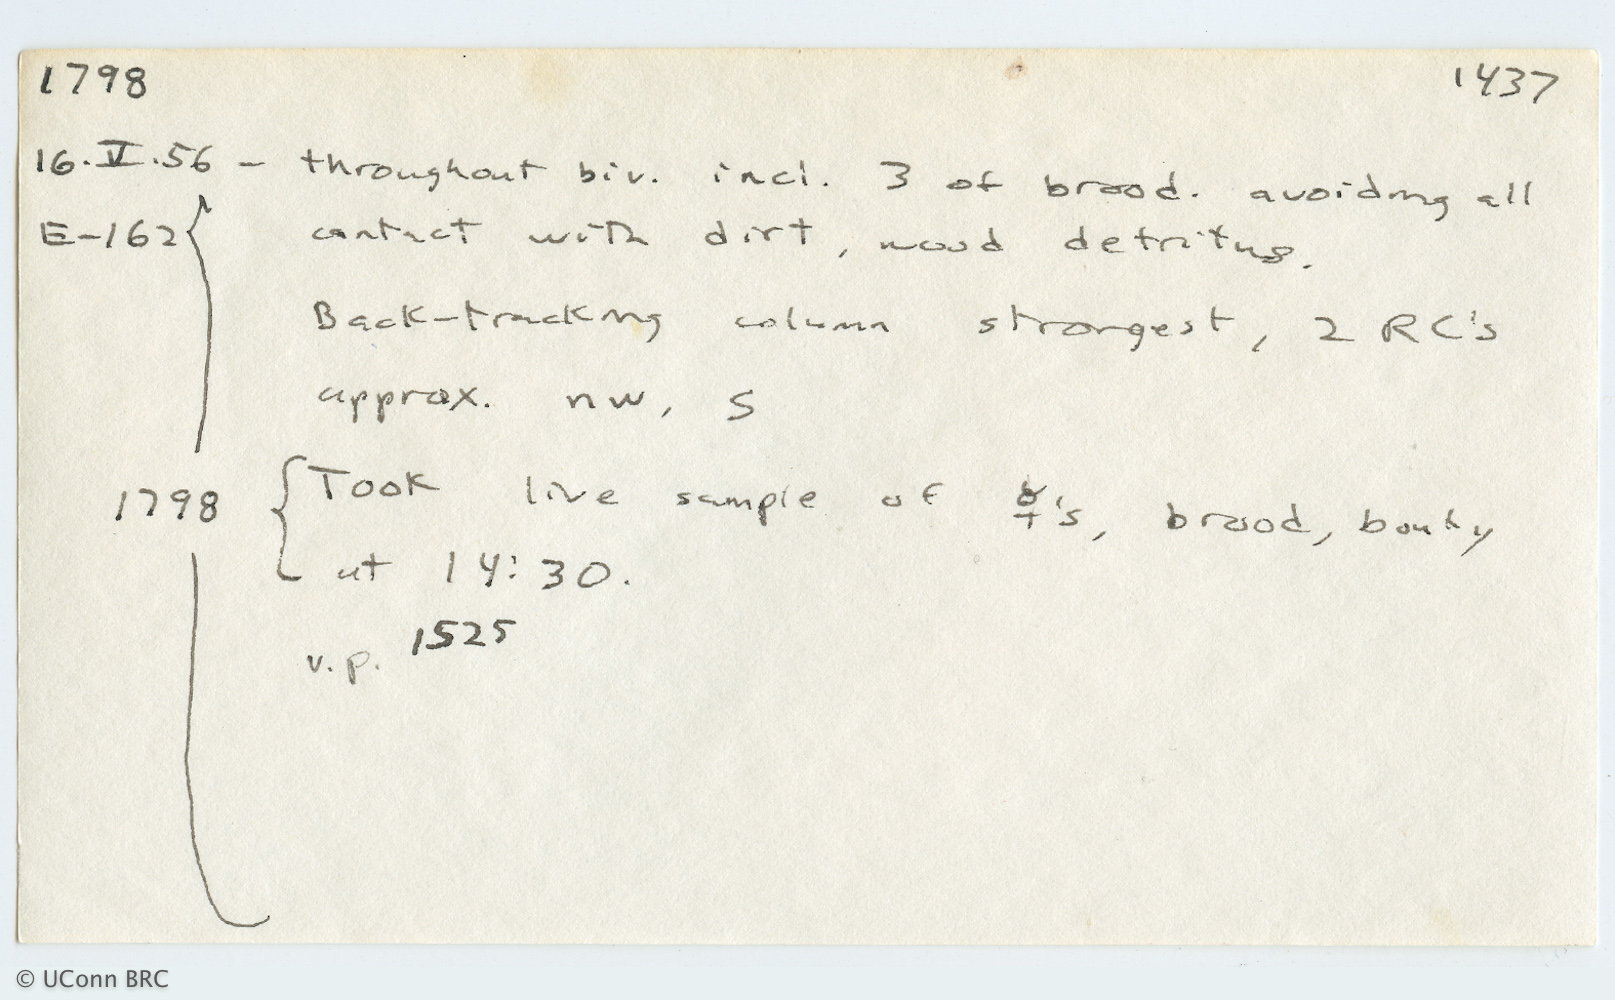 1798 1437
16.V.56 – throughout biv. incl. 3 of brood. avoiding all
E-162 contact with dirt, wood detritus.
Back-tracking column strongest, 2 RC's
approx. nw, S
1798 { Took live sample of ☿'s, brood, booty
at 14:30.
v.p. 1525
© UConn BRC